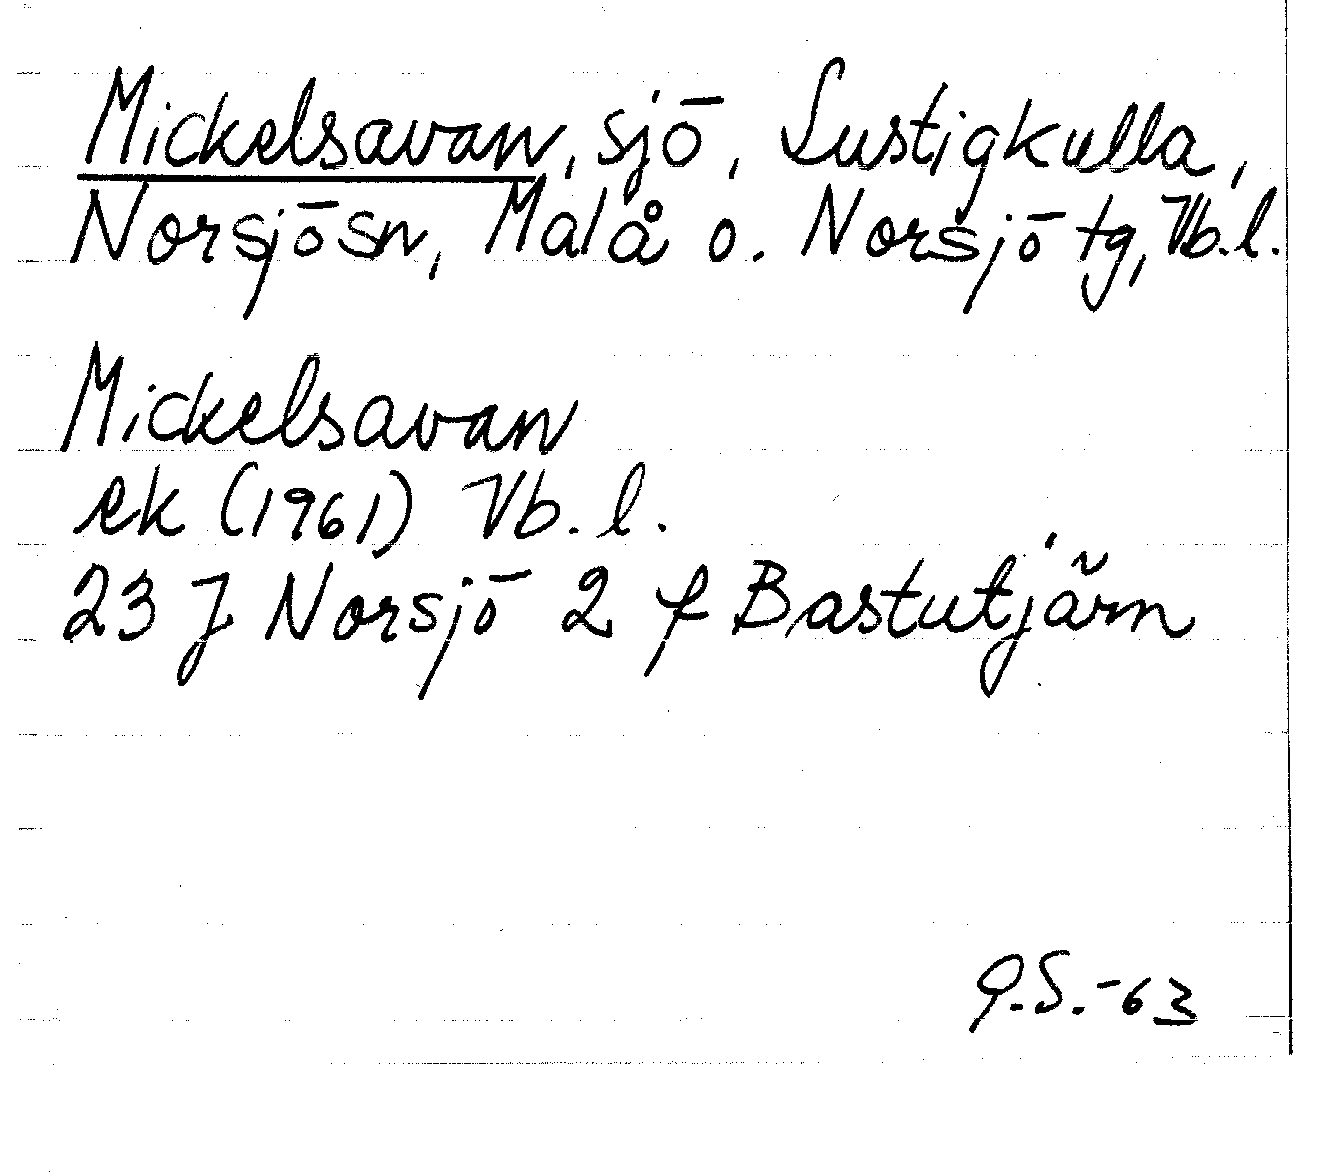 Mickelsavan, sjö, Lustigkulla,
Norsjö sn, Malå o. Norsjö tg, Vb.l.
Mickelsavan
ek (1961) Vb. l.
23 J Norsjö 2 f Bastutjärn
G.S.-63